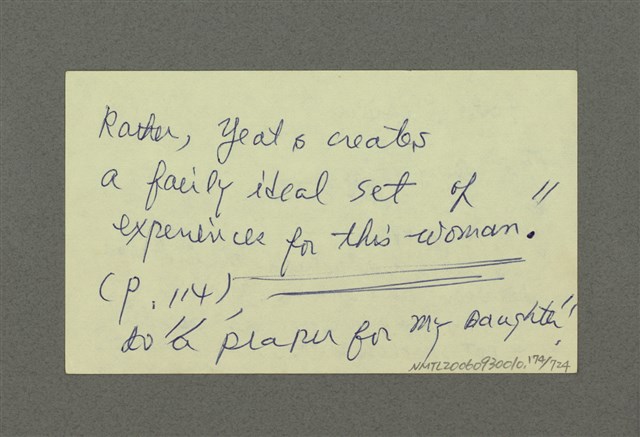 Rather, Yeats creates
a fairly ideal set of
experiences for this woman."
(p. 114)
do "A praper for My Daughter"
NMTL20060930010.174/724